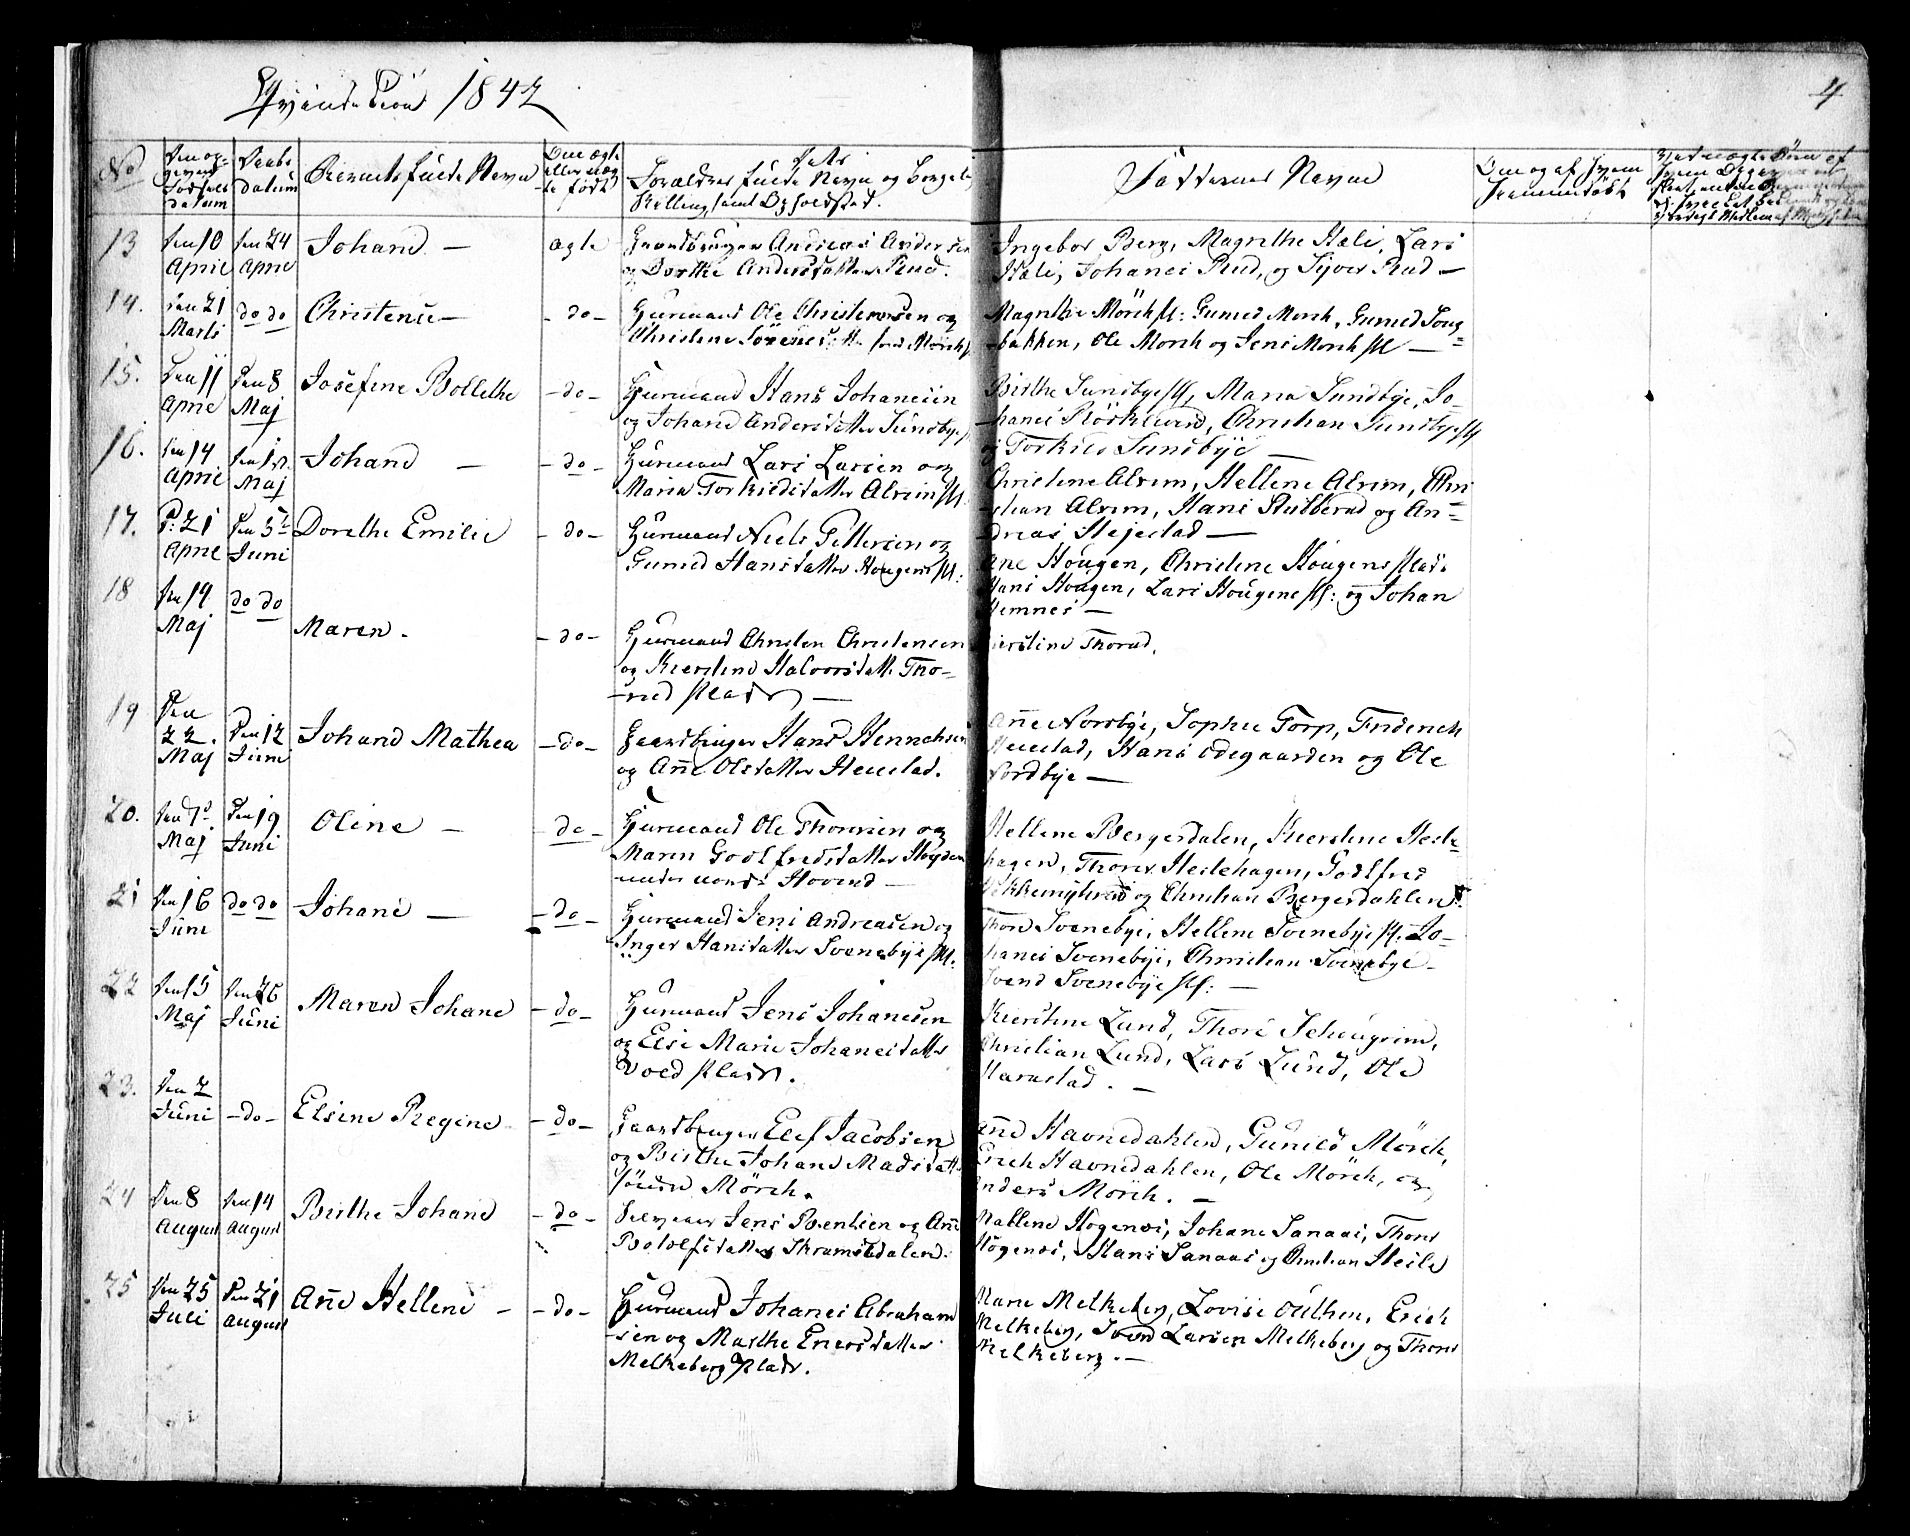 Qvindekiön 1842
4
No
Den op-
givne
Fødsels
datum
Daabs
datum
Barnets fulde Navn
Om ægte
eller uæg-
te født
Dets
Forældres fulde Navn og borgelig
Stilling, samt Opholdsted.
Faddernes Navne
Om og af hvem
hiemmedøbt
13
den 10
April
den 24
April
Johane —
ægte
Gaardbruger Andreas Andersen
og Dorthe Andersdatter Rud.
Ingebor Berg, Magrethe Hæli, Lars
Hæli, Johanes Rud, og Syver Rud —
14.
den 21
Marts
do do
Christense —
- do -
Huusmand Ole Christensen og
Christene Sørensdatter
Magrethe Mörch, Gunild Mörch, Gunild
-bakken, Ole Mörch og Jens Mörch —
15.
Den 11
April
Den 8
Maj
Josefine Bollethe
- do -
Huusmand Hans Johanesen
og Johane Andersdatter Sundbye
Birthe Sundbye, Maria Sundbye, Jo-
-hanes, Christian Sundbye
og Torkild Sundbye —
16.
den 14
April
Maj
Johane —
- do -
Huusmand Lars Larsen og
Maria Torkildsdatter Alrum
Christene Alrum, Hellene Alrum, Chri
-stian Alrum, Hans Stubberud og An-
dreas Hejestad —
17.
D: 21
April
Den 5te
Juni
Dorethe Emilie
- do -
Huusmand Niels Pettersen og
Gunild Hansdatter Hougens
Ane Hougen, Christene Hougens Plads
Hans Hougen, Lars Hougens og Johan
Hemnes —
18
den 19
Maj
do do
Maren.
- do -
Huusmand Christen Christensen
og Kierstine Halvorsdatt. Tho-
-rud Plads —
Kierstine Thorud.
19
Den
22.
Maj
Den 12
Juni
Johane Mathea
- do -
Gaardbruger Hans Hennechsen
og Añe Olsdatter Heiestad.
Añe Nordbye, Sophie Torp, Friderich
Heiestad, Hans Ødegaarden og Ole
Nordbye —
20.
Maj
Den 19
Juni
Oline —
- do -
Huusmand Ole Thorersen og
Maren Godtfredsdatter
under Hovind —
Hellene Bergerdalen, Kierstene Heile-
hagen, Thorer Heilehagen, Godtfred
og Christian Bergerdahlen
21
Den 16
Juni
do do
Johane —
- do -
Huusmand Jens Andreasen og
Inger Hansdatter Svenebye
Svenebye, Hellene Svenebye, Jo-
hanes Svenebye, Christian Svenebye
Svend Svenebye —
22
Den 15
Maj
Den 26
Juni
Maren Johane
- do -
Huusmand Jens Johanesen
og Else Marie Johanesdatter
Vold Plads.
Kierstene Lund, Thore
Christian Lund, Lars Lund, Ole
Harastad. —
23.
Den 2
Juni
- do -
Elsine Regine
- do -
Gaardbruger Elef Jacobsen
og Birthe Johane Madsdatt.
Söndre Mörch.
Añe Havnedahlen, Gunild Mörch,
Erich Havnedahlen, Ole Mörch, og
Anders Mörch. —
24
Den 8
August
Den 14
August
Birthe Johane
- do -
Jens Bentsen og Añe
Bolelsdatter Skramstdalen.
Mallene Høgenæs, Johane Sanaas, Thore
Høgenæs, Hans Sanaas og Christian Heile
25
Den 25
Juli
Den 21
August
Añe Hellene —
- do -
Huusmand Johanes Abraham
-sen og Marthe Enersdatter
Melkeberg Plads.
Marie Melkeberg, Lovise Outhen, Erich
Melkeberg, Svend Larsen Melkeberg og Thore
Melkeberg. —